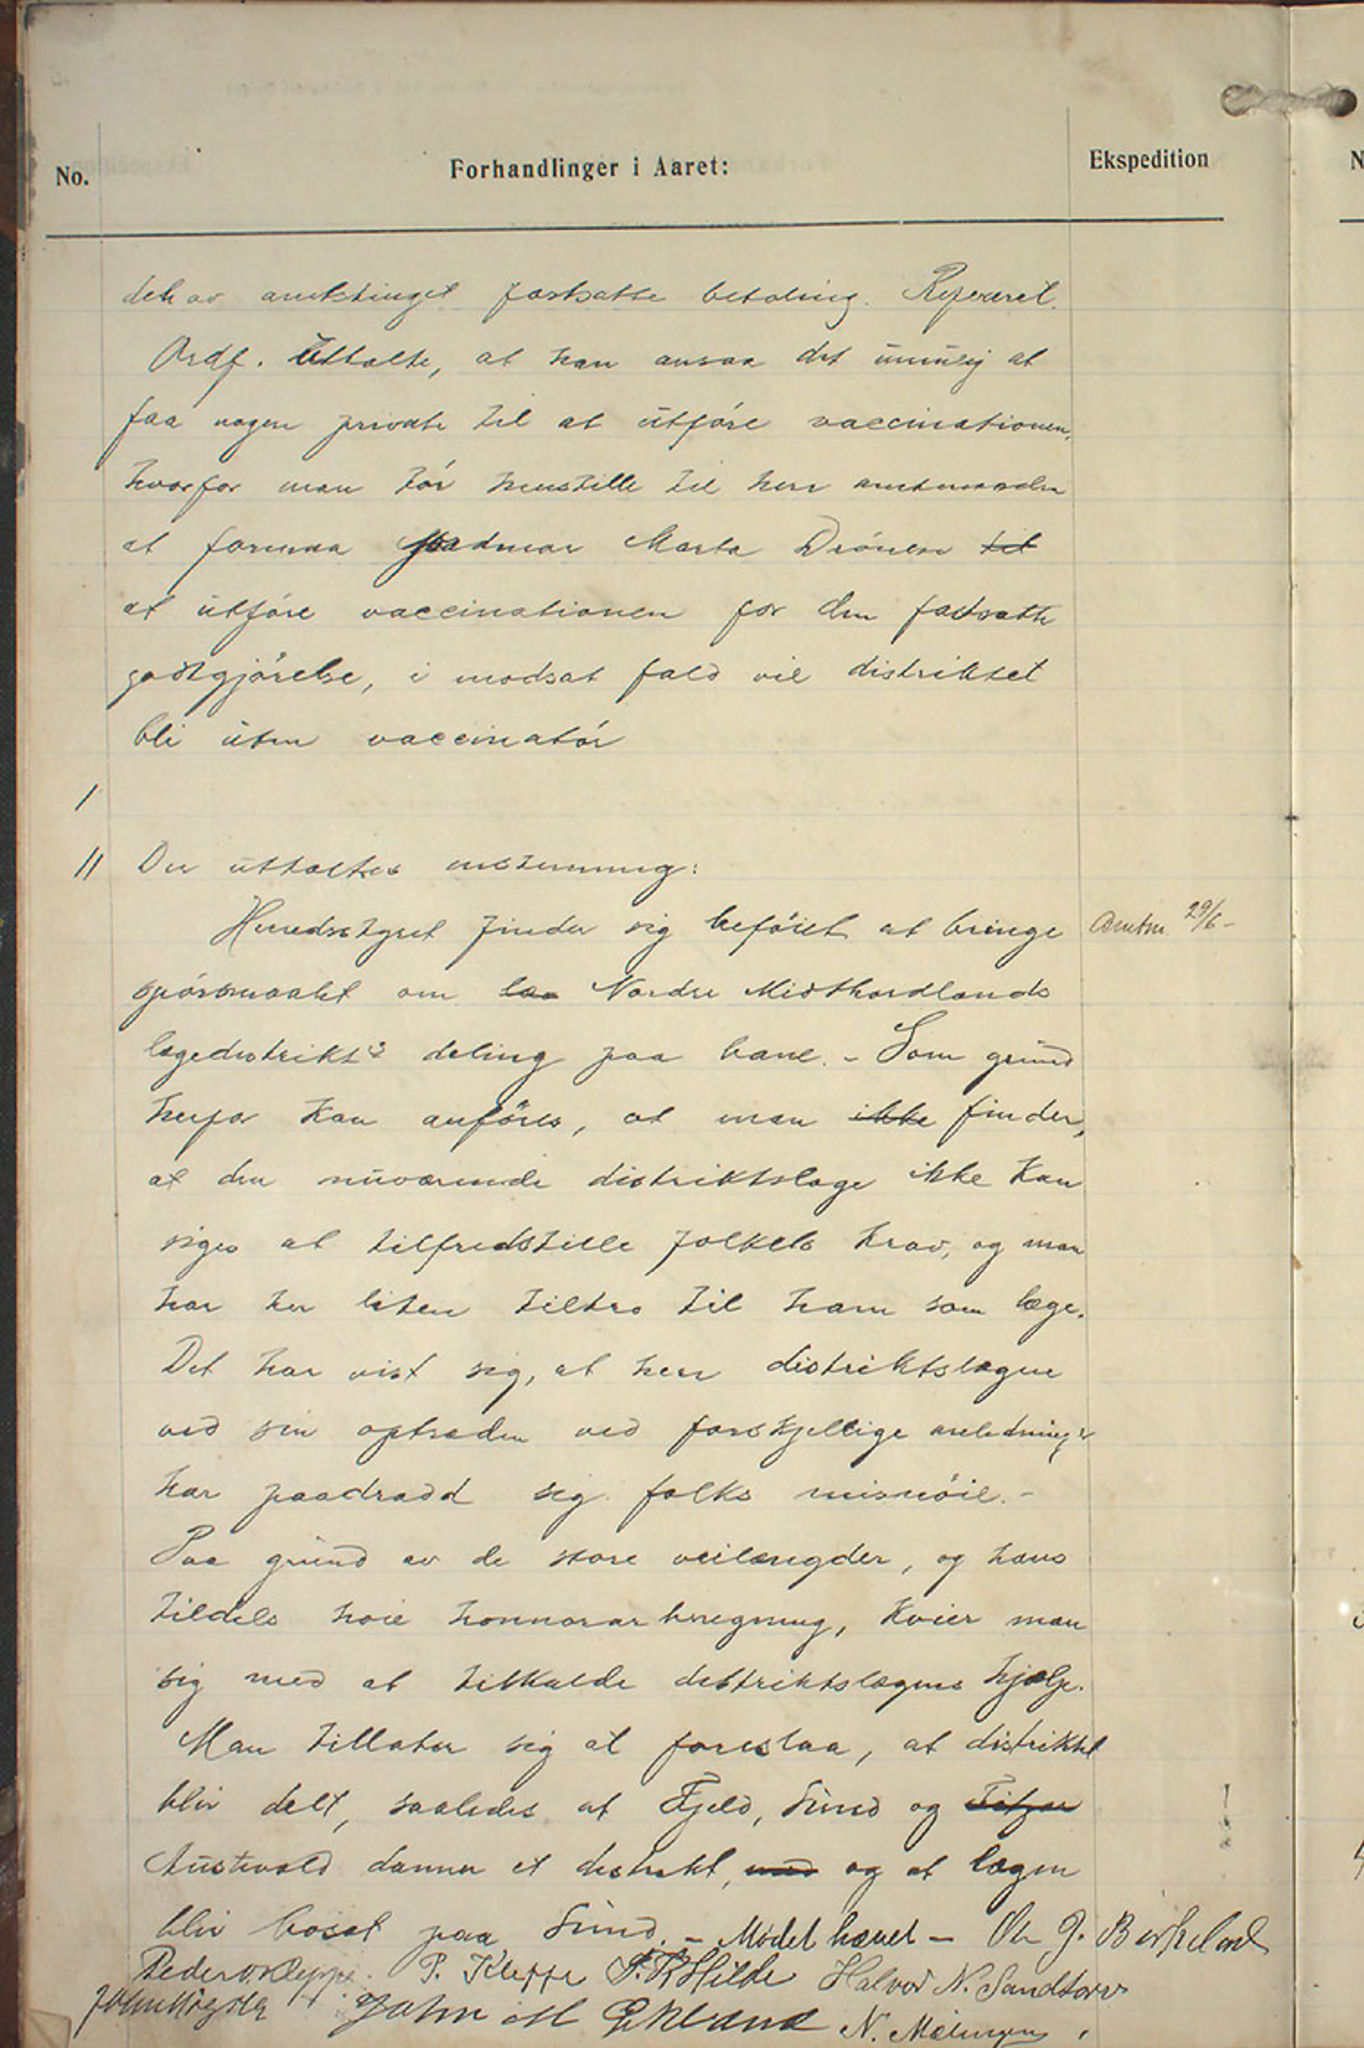 No.
Forhandlinger i Aaret:
Ekspedition
den av amtstinget fastsatte betaling. Referert.
Ordf. uttalte, at han ansaa det umulig at
faa nogen private til at utføre vaccinationen,
hvorfor man tør henstille til herr amtmanden
at formaa jordmor Marta Drönen til
at utføre vaccinationen for den fastsatte
godtgjörelse, i modsat fald vil distriktet
bli uten vaccinatör
1
11 Der uttaltes enstemmig:
Herredsstyret finder sig beföiet at bringe
Amtm. 29/6-
spörsmaalet om Nordre Midthordlands
lægedistrikts deling paa bane. - Som grund
herfor kan anföres, at man ikke finder,
at den nuværende distriktslæge ikke kan
siges at tilfredstille folkets krav, og man
har her liten tiltro til ham som læge.
Det har vist sig, at herr distriktslægen
ved sin optræden ved forskjellige anledninger
har paadradd sig folks misnöie. -
Paa grund av de store veilængder, og hans
tildels høie honnorarberegning, kvier man
sig med at tilkalde distriktslægens hjælp.
Man tillater sig at foreslaa, at distriktet
blir delt, saaledes at Fjeld, Sund og Fitjar
Austevold danner et distrikt, med og at lægen
blir bosat paa Sund. - Mødet hævet - Ole J. Birkeland
Peder O. Kleppe. P. Kleppe Halvor N. Sandtorv
John Ekeland N. Målungen